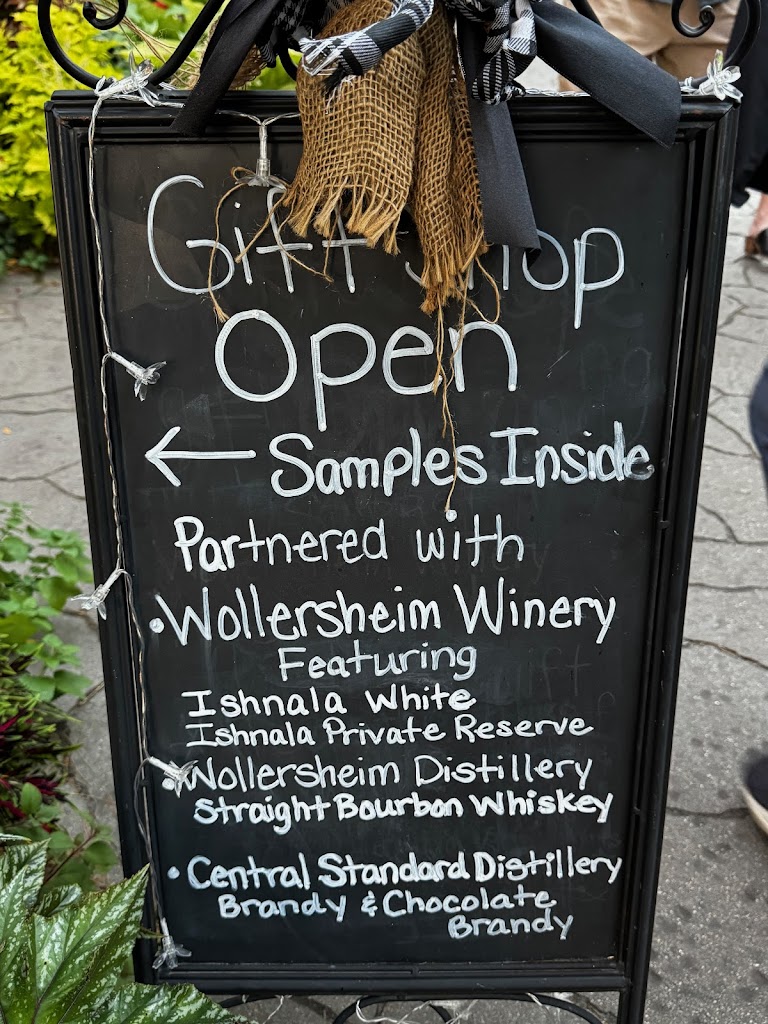 Gift Shop
Open
← Samples Inside
Partnered with
• Wollersheim Winery
Featuring
Ishnala White
Ishnala Private Reserve
• Wollersheim Distillery
Straight Bourbon Whiskey
• Central Standard Distillery
Brandy & Chocolate
Brandy